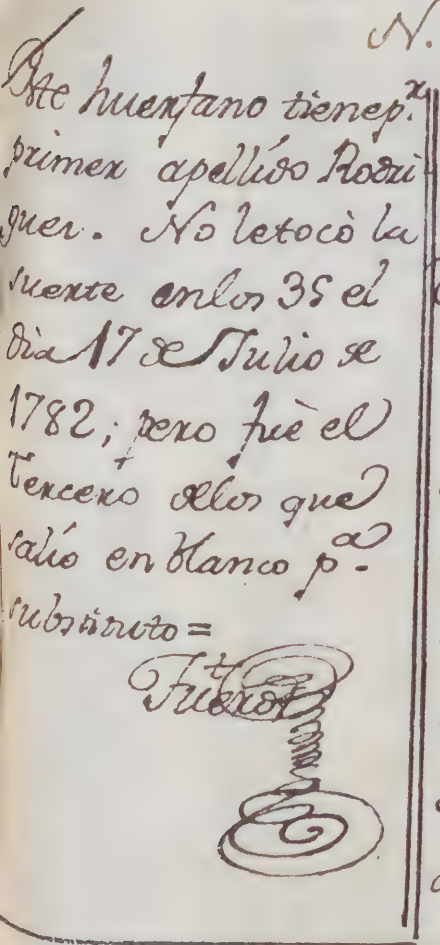 N.
Este huerfano tiene p.r
primer apellido Rodri
guez. No le tocò la
suerte en los 35 el
dia 17 de Julio de
1782; pero fuè el
Tercero de los que
salio en blanco p.a
substituto =
Fuero